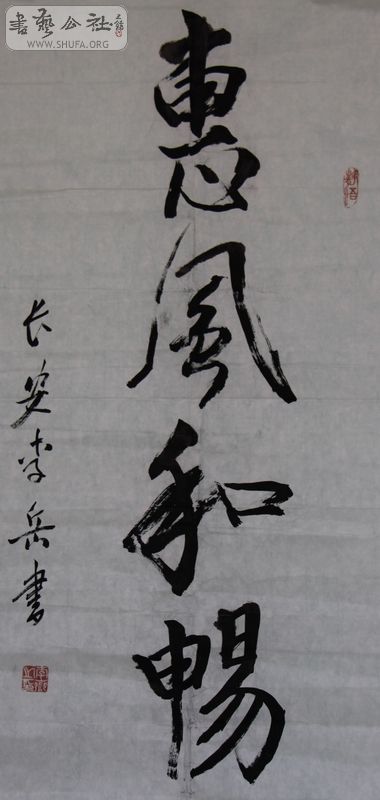 書藝公社
WWW.SHUFA.ORG
惠風和暢
长安李岳書